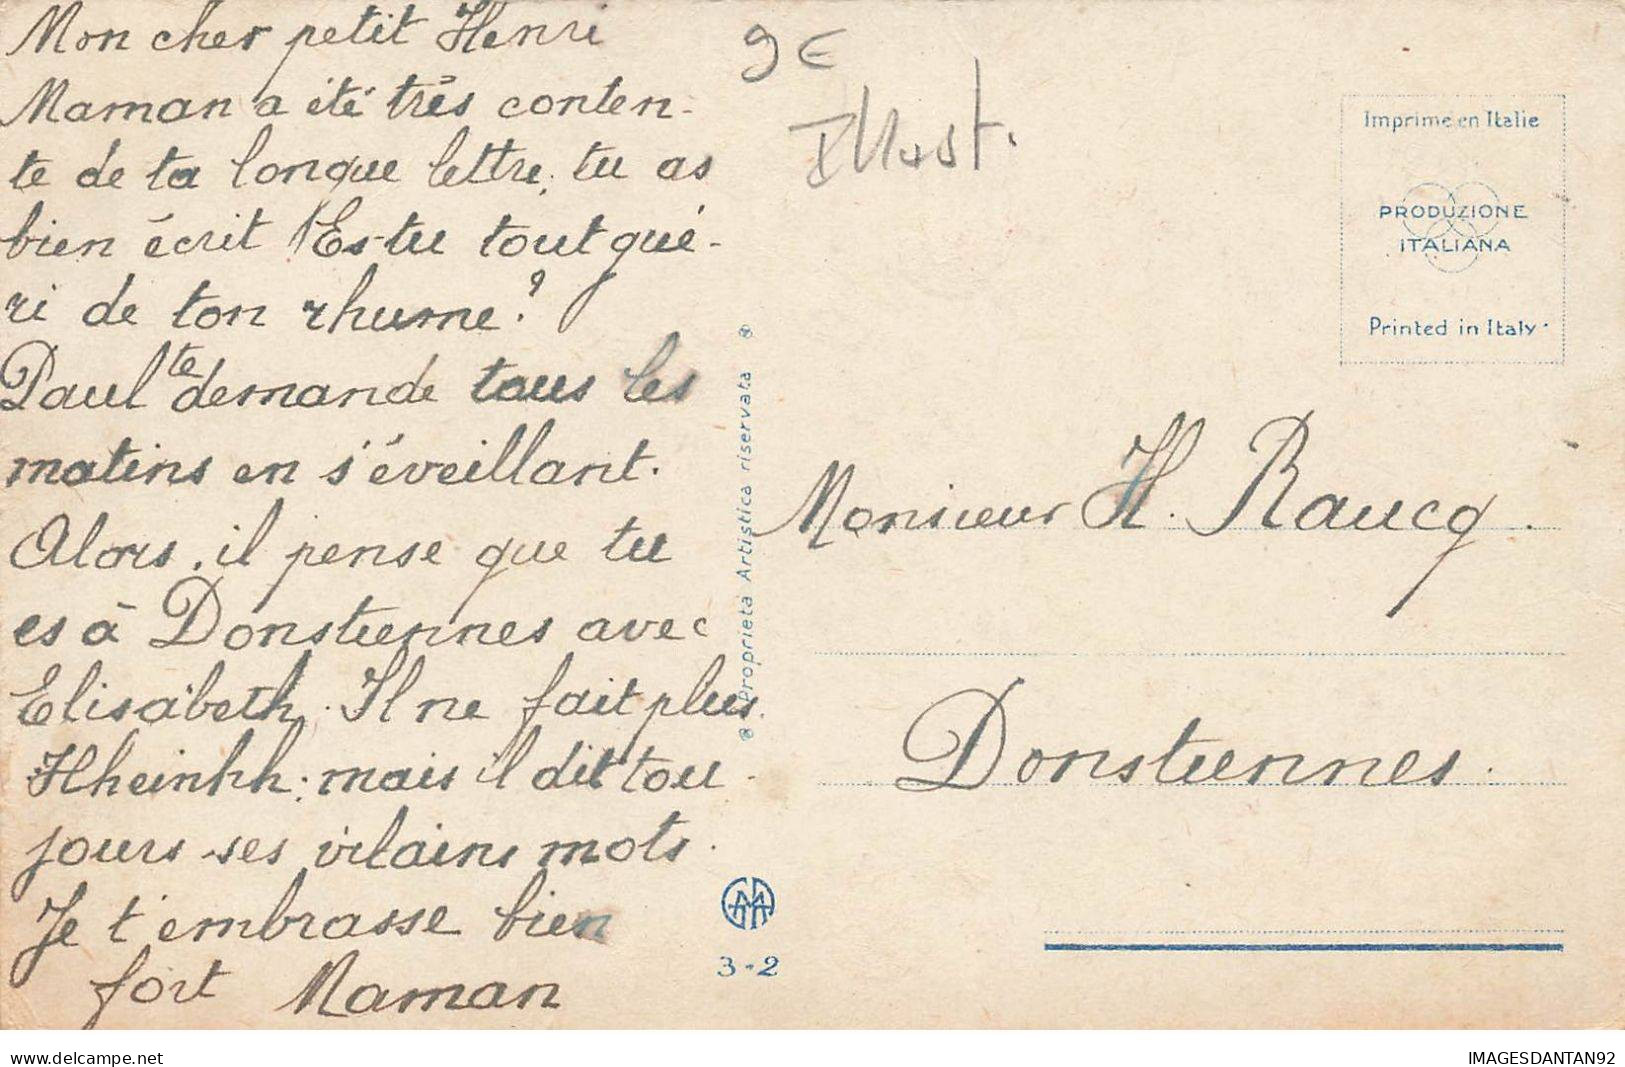 Mon cher petit Henri
Maman a été très conten-
te de ta longue lettre, tu as
bien écrit Es-tu tout gué-
ri de ton rhume ?
Paul te demande tous les
matins en s'éveillant.
Alors, il pense que tu
es à Donstiennes avec
Elisabeth. Il ne fait plus
Hheinhh; mais il dit tou-
jours ses vilains mots.
Je t'embrasse bien
fort Maman
9 €
Illust.
® Proprieta Artistica riservata ®
3-2
Imprime en Italie
PRODUZIONE
ITALIANA
Printed in Italy
Monsieur H. Raucq.
Donstiennes.
www.delcampe.net
IMAGESDANTAN92